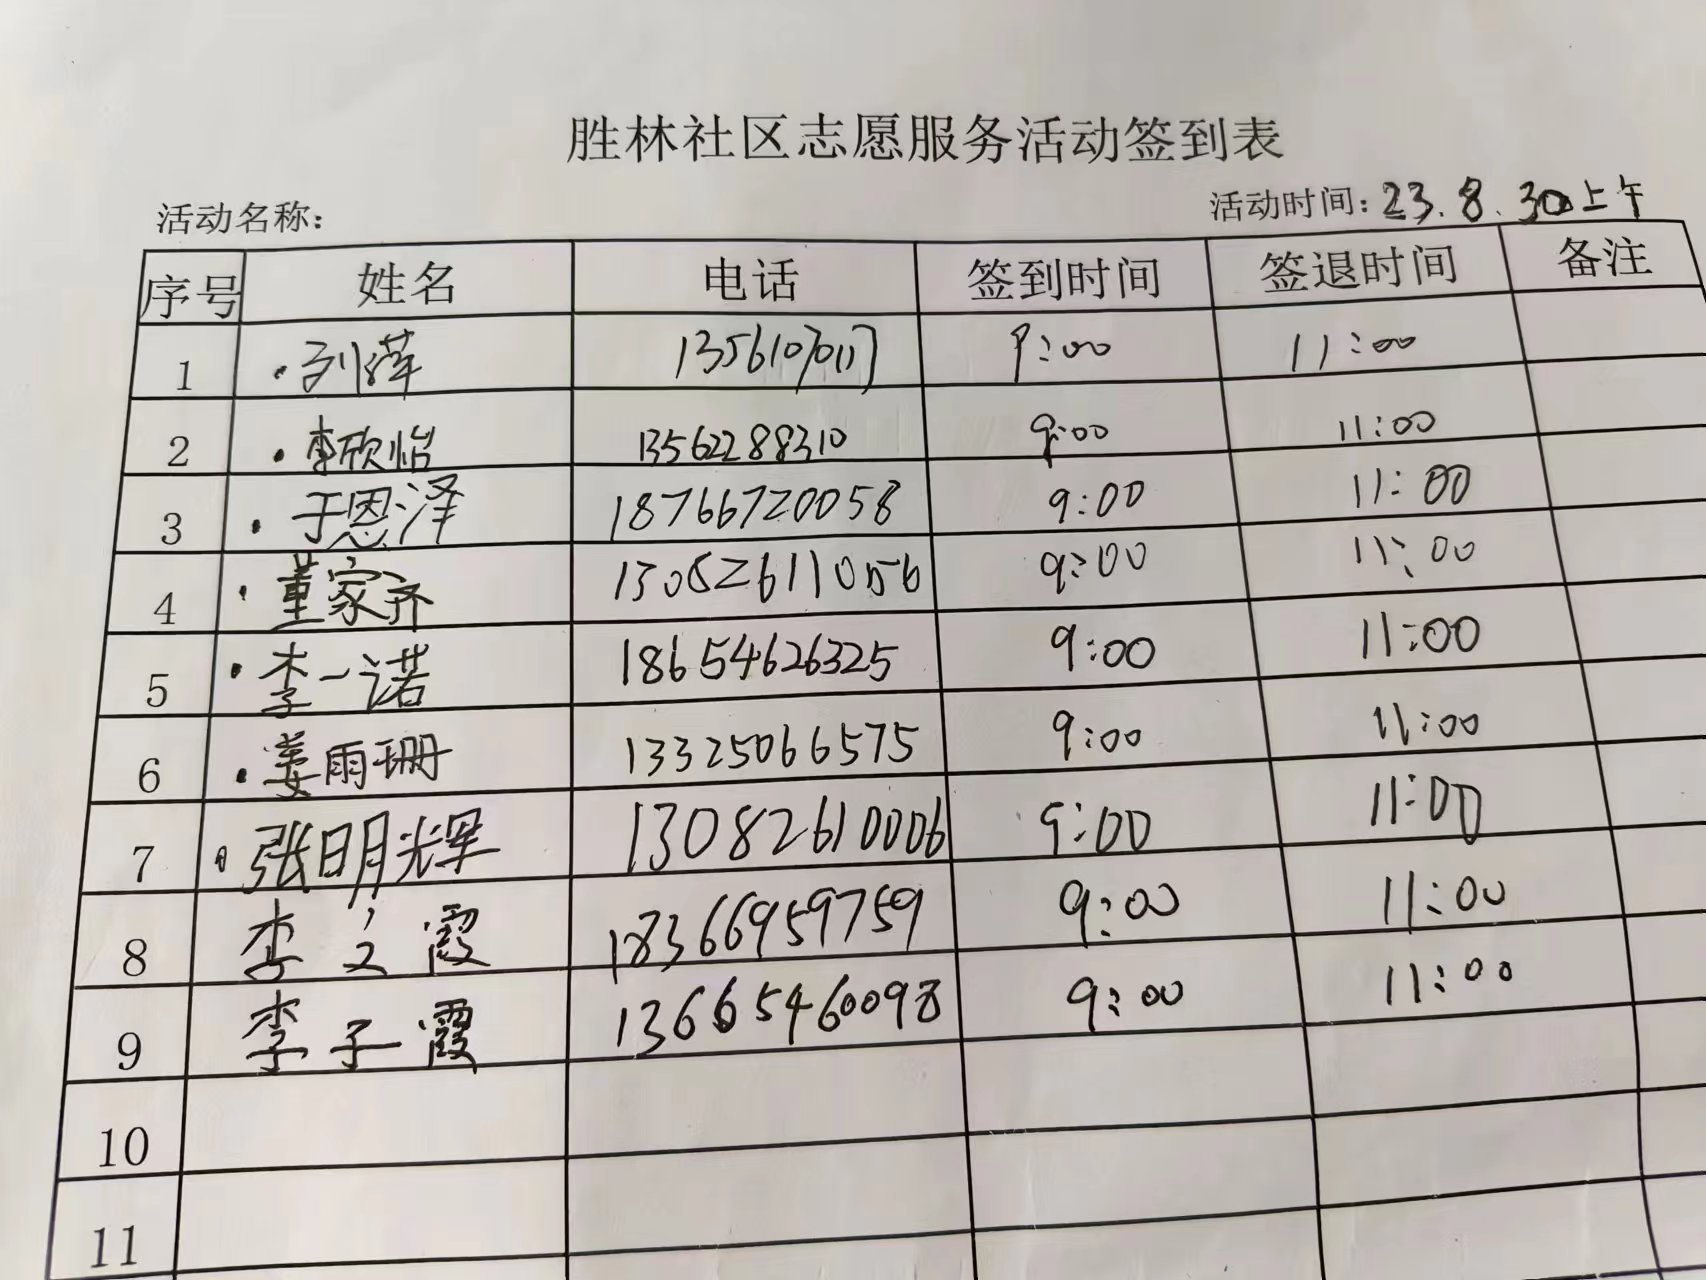 胜林社区志愿服务活动签到表
活动名称: 活动时间: 23.8.30上午
序号 姓名 电话 签到时间 签退时间 备注
1 · 刘萍 9:00 11:00
2 · 李欣怡 13562288310 9:00 11:00
3 · 于恩泽 18766720058 9:00 11:00
4 · 董家齐 9:00 11:00
5 · 李一诺 18654626325 9:00 11:00
6 · 姜雨珊 13325066575 9:00 11:00
7 · 张明辉 13082610006 9:00 11:00
8 李文霞 18366959759 9:00 11:00
9 李子霞 13665460098 9:00 11:00
10
11